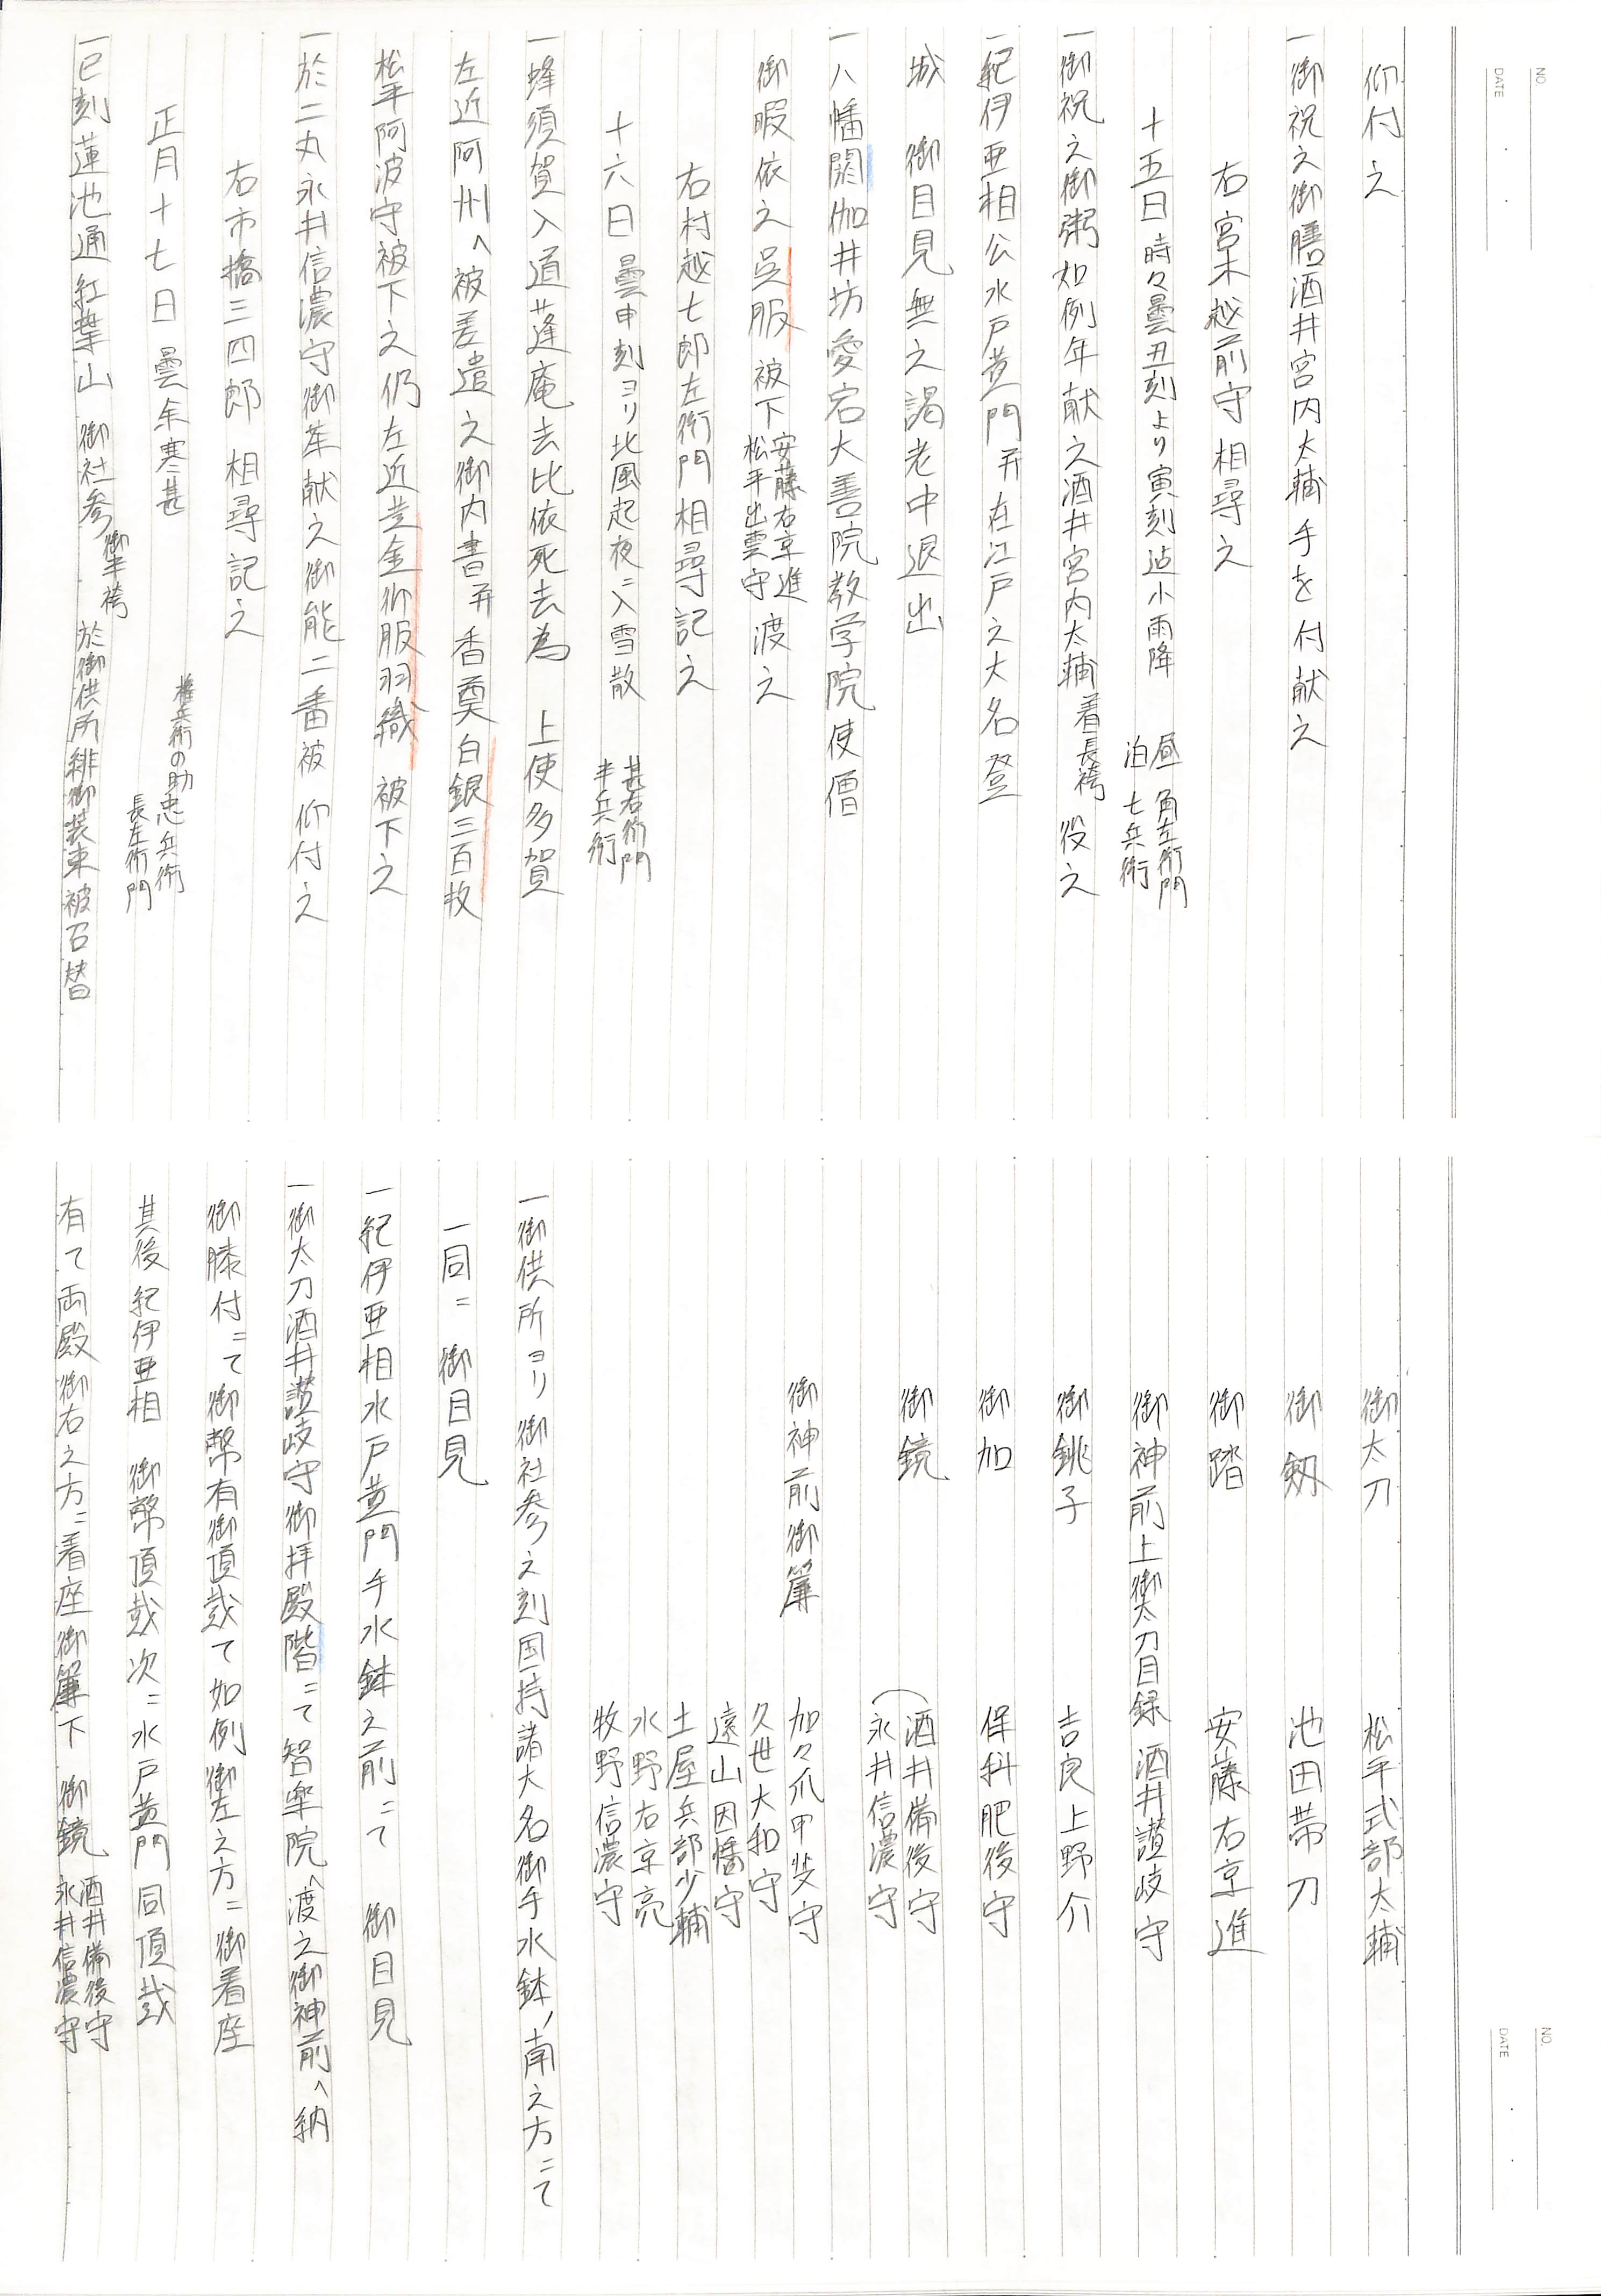 NO.
DATE
仰付之
一御祝之御膳酒井宮内大輔手を付献之
右宮木越前守相尋之
十五日時々曇丑刻より寅刻迠小雨降 昼角左衛門 泊七兵衛
一御祝之御粥如例年献之酒井宮内太輔着長袴役之
一紀伊亜相公水戸黄門并在江戸之大名登
城 御目見無之謁老中退出
一八幡閼伽井坊愛宕大善院教学院使僧
御暇依之呉服被下安藤右京進松平出雲守渡之
右村越七郎左衛門相尋記之
十六日曇申刻ヨリ北風起夜ニ入雪散 甚右衛門 半兵衛
一蜂須賀入道蓬庵去比依死去為 上使多賀
左近阿州へ被差遣之御内書并香奠白銀三百枚
松平阿波守被下之仍左近黄金御服羽織被下之
一於二丸永井信濃守御茶献之御能二番被仰付之
右市橋三四郎相尋記之
正月十七日曇余寒甚 権兵衛の助忠兵衛 長左衛門
一巳刻蓮池通紅葉山 御社参御半袴 於御供所緋御装束被召替
御太刀 松平式部太輔
御剱 池田帯刀
御踏 安藤右京進
御神前上御太刀目録 酒井讃岐守
御銚子 吉良上野介
御加 保科肥後守
御鏡 酒井備後守 永井信濃守
御神前御簾 加々爪甲斐守
久世大和守
遠山因幡守
土屋兵部少輔
水野右京亮
牧野信濃守
一御供所ヨリ御社参之刻国持諸大名御手水鉢ノ南之方ニて
一同ニ 御目見
一紀伊亜相水戸黄門手水鉢之前ニて 御目見
一御太刀酒井讃岐守御拝殿階ニて智楽院へ渡之御神前へ納
御膝付ニて御幣有御頂戴て如例御左之方ニ御着座
其後紀伊亜相 御幣頂戴次ニ水戸黄門同頂戴
有て両殿御右之方ニ着座御簾下 御鏡酒井備後守永井信濃守
NO.
DATE